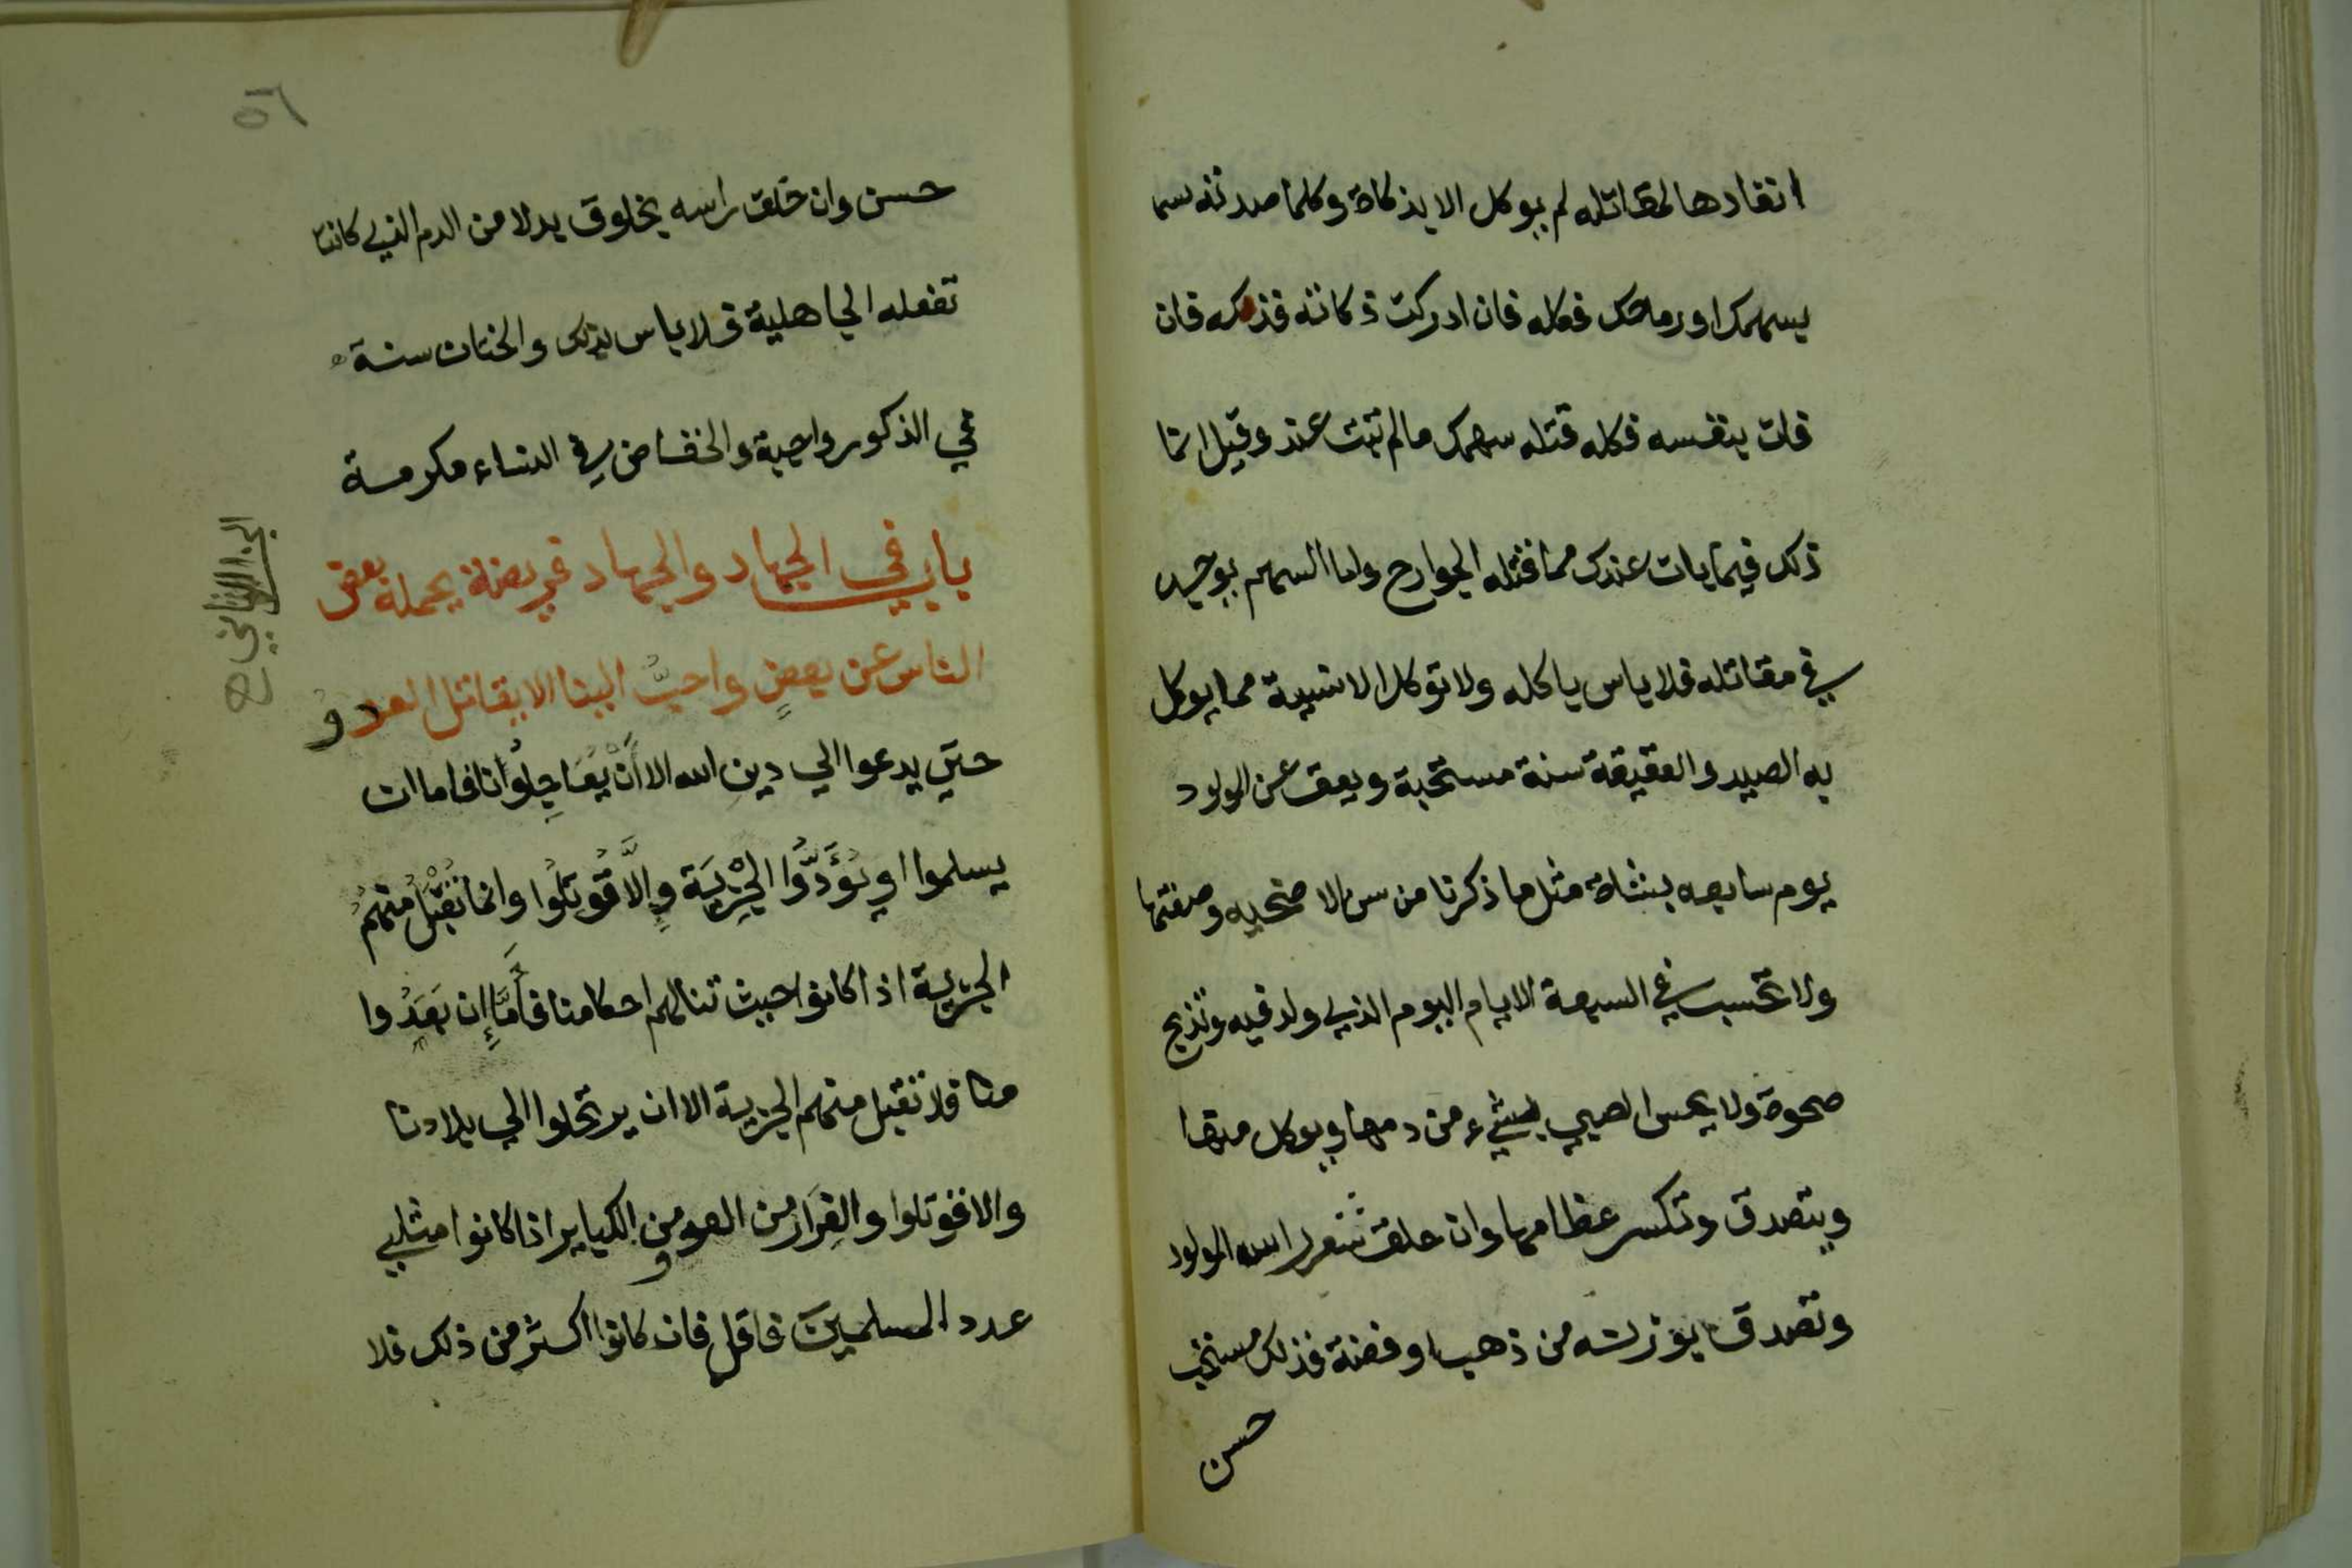 انفادها لمقاتله لم يوكل الا بذكاة وكلما صدته
بسهمك او رماحك فكله فان ادركت ذكاته فذكه فان
فات بنفسه فكله قتله سهمك مالم تبت عند وقيل انما
ذلك فيما بات عندك مما قتله الجوارح واما السهم يوجد
في مقاتله فلا باس ياكله ولا توكل الانسية مما يوكل
به الصيد والعقيقة سنة مستحبة ويعق عن المولود
يوم سابعه بشاة مثل ما ذكرنا من سن الاضحيه وصفتها
ولا تحسب في السبعة الايام اليوم الذي ولد فيه وتذبح
صحوة ولا يمس الصبي بشيء من دمها ويوكل منها
ويتصدق وتكسر عظامها وان حلق شعر راسه المولود
وتصدق بوزنه من ذهب او فضة فذلك مستحب
حسن
٥٦
حسن وان خلق راسه بخلوق بدلا من الدم الذي كانت
تفعله الجاهلية فلا باس بذلك والختان سنة
في الذكور واجبة والخفاض في النساء مكرمة
باب في الجهاد والجهاد فريضة يحمله بعض
الناس عن بعضٍ واحبُّ الينا الا يقاتل العدو
حتي يدعوا الي دين الله الا أنْ يُعَاجِلُوْنا فاما ان
يسلموا او يُؤَدُّوا الجِزْيَة وإِلَّا قُوتِلُوا وانما تُقْبَلُ منهمُ
الجزية اذا كانوا حيث تنالهم احكامنا فأَمَّا إِن بَعَدُوا
منا فلا تقبل منهم الجزية الا ان يرتحلوا الي بلادنا
والا قوتلوا والفِرَار من العدو من الكبائر اذا كانوا مثلي
عدد المسلمين فاقل فان كانوا اكثر من ذلك فلا